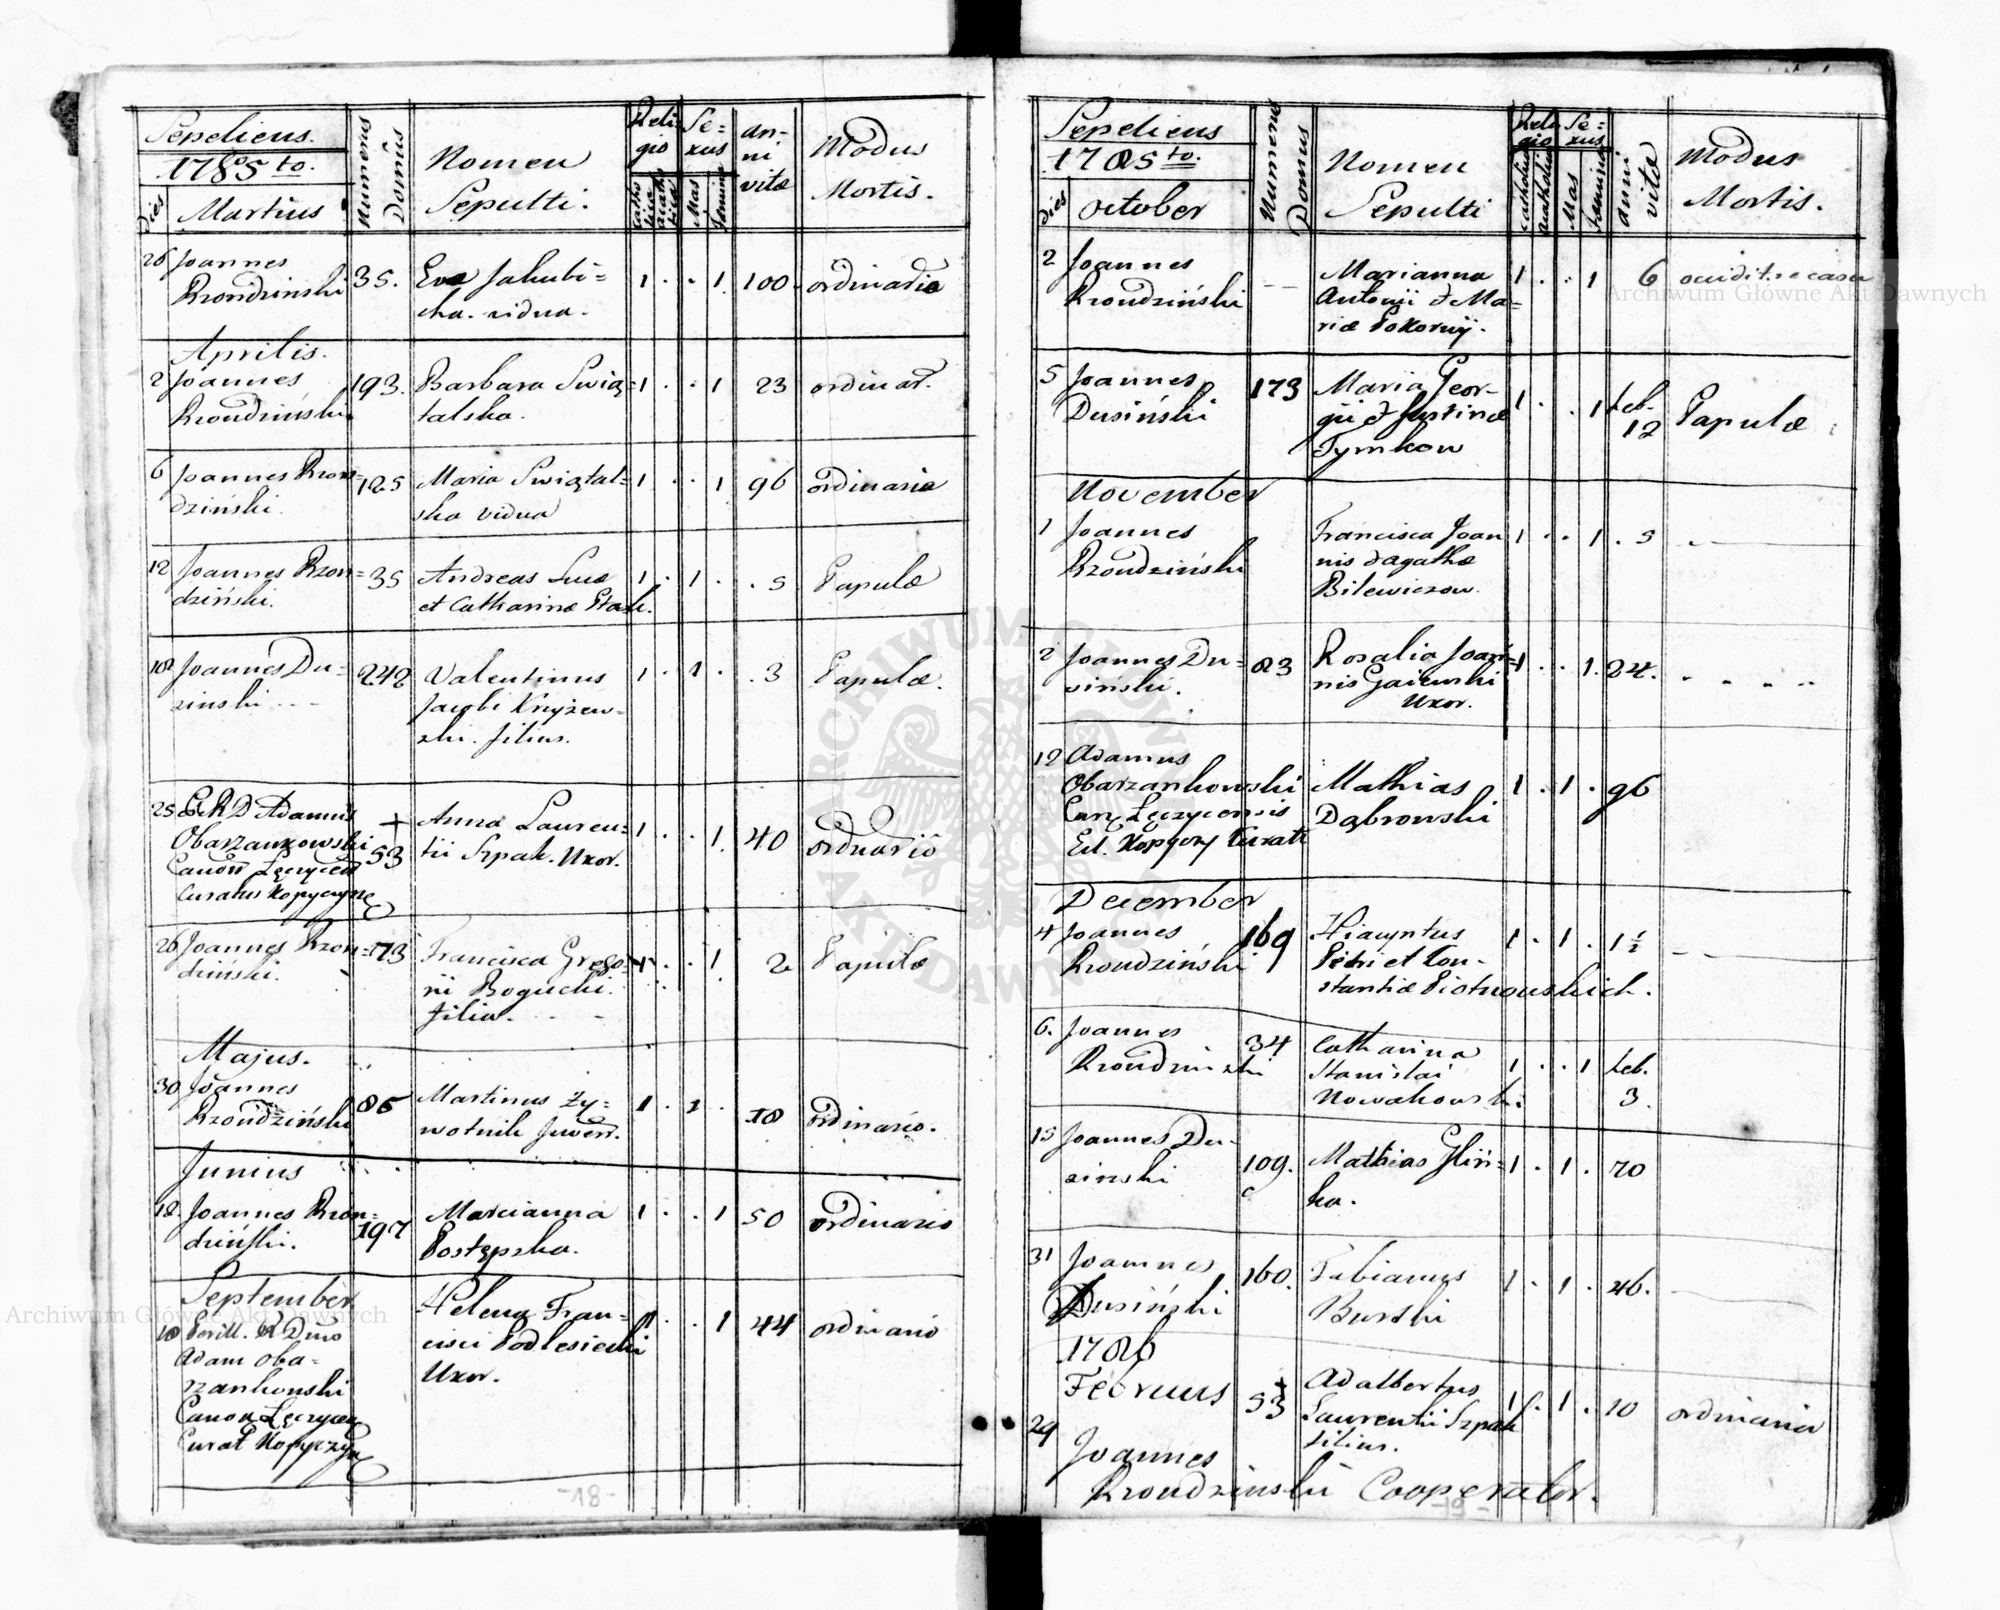 Sepeliens.
1785to.
dies
Martius
Numerus Domûs
Nomen
Sepulti.
Reli-
gio
Catho
lica
acatho
lica
Se-
xus
Mas
Femina
an-
ni
vitæ
Modus
Mortis.
26 Joannes
Rzondzinski 35. Eva Jakubi=
cka. vidua. 1 . . 1 100 ordinaria
Aprilis.
2 Joannes
Rzondziński 193. Barbara Swią=
talska. 1 . . 1 23 ordinar.
6 Joannes Rzon=
dziński. 125 Maria Swiątal=
ska vidua 1 . . 1 96 ordinaria
12 Joannes Rzon=
dziński. 35 Andreas Lucæ
et Catharinæ Ptak. 1 . 1 . . 5 Papulæ
18 Joannes Du=
sinski 242 Valentinus
Jacobi Knyżew-
ski. filius. 1 . 1 . . 3 Papulæ.
25 Adamus
Obarzankowski
Canon Łęczycen
Curatus Kopyczyne
+
53 Anna Lauren=
tii Szpak. Uxor. 1 . . 1. 40
26 Joannes Rzon=
dziński. 173 Francisca Grego=
rii Bogucki.
filia. 1 . . 1 2 Papulæ
Majus.
30 Joannes
Rzondziński 86 Martinus Zy=
wotnik Juven. 1 . 1 . 18 ordinario.
Junius
12. Joannes Rzon=
dziński. 197 Marcianna
Postępska. 1 . . 1 50 ordinario
September
18 Perill. R Dno
Adam Oba=
rzankowski
Canon Łęczycen
Curat Kopyczyn
Helena Fran=
cisci Podlesiecki
Uxor. 1 . . 1 44 ordinario
-18-
Sepeliens
1785to.
dies
October
Numerus
Domus
Nomen
Sepulti
Reli
gio
Catholica
Acatholica
Se=
xus
Mas
Femina
anni
vitæ
Modus
Mortis.
2 Joannes
Rzondziński -- Marianna
Antonii & Ma=
riæ Pokorny. 1 . . 1 6
5 Joannes
Dusiński 173 Maria Geor-
gii & Justinæ
Tymkow 1 . . 1 heb.
12 Papulæ
November
1 Joannes
Rzondziński Francisca Joan
nis & Agathæ
Bilewiczow. 1 . . 1 . 5
2 Joannes Du=
siński. 83 Rosalia Joan=
nis Gaiewski
Uxor. 1 . . 1. 24.
12 Adamus
Obarzankowski
Can. Łęczycensis
Mathias
Dąbrowski 1 . 1 . 96
December
4 Joannes
Rzondziński 169 Hiacyntus
Petri et Con-
stantiæ Piotrowskich. 1 . 1 . 1½
6. Joannes
Rzondzinski 34 Catharina
Stanislai
Nowakowski 1 . . 1 heb.
3.
15 Joannes Du-
sinski 109. Mathias Glin=
ka. 1 . 1 . 70
31 Joannes
Dusiński 160. Fabianus
Burski 1 . 1 . 46.
1786
Februus
29 Joannes
Rzondzinski Cooperator.
+
53 Adalbertus
Laurentii Szpak
filius. 1 . 1 . 10 ordinaria
-19-
Archiwum Główne Akt Dawnych
Archiwum Główne Akt Dawnych
ARCHIWUM GŁÓWNE AKT DAWNYCH